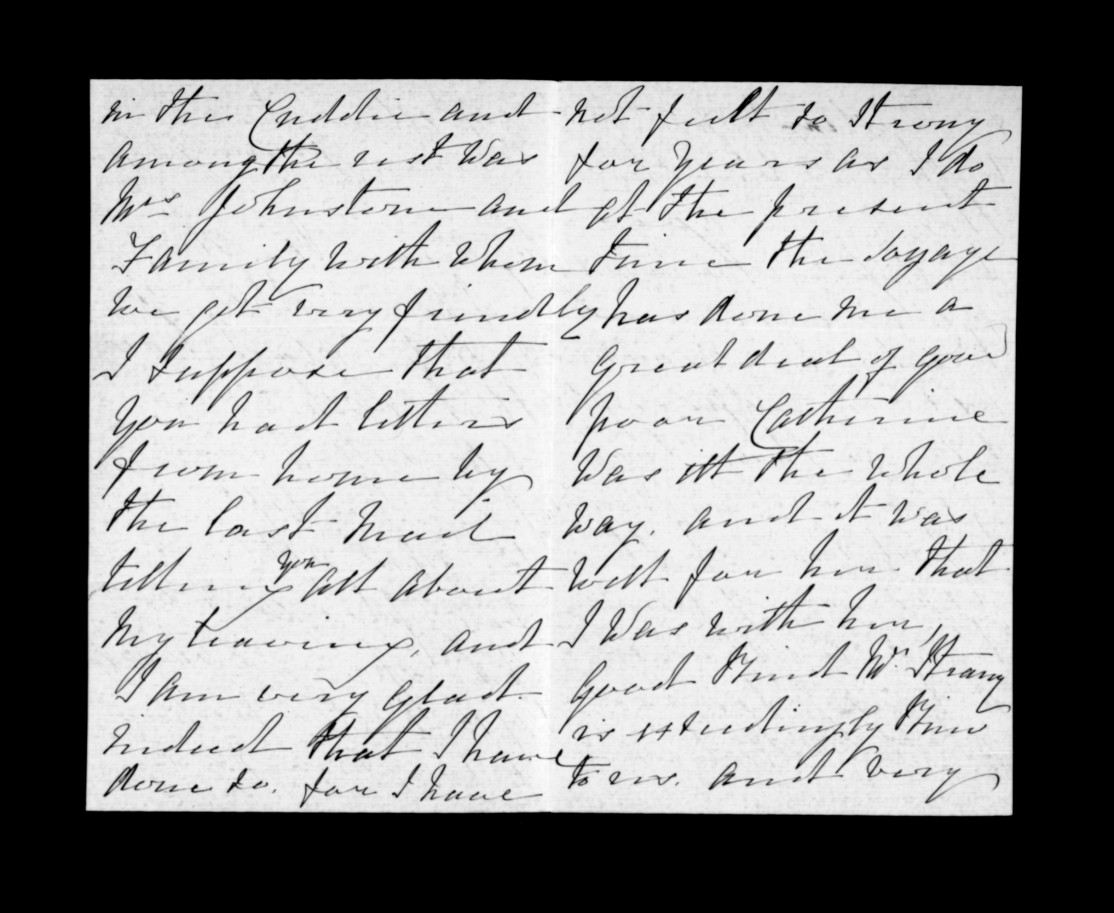 in the Cuddie and
among the rest was
Mrs Johnstone and
Family with whom
we got very friendly
I suppose that
you had letters
from home by
the last Mail
telling you all about
my leaving, and
I am very glad
indeed that I have
done so. for I have
not felt so strong
for years as I do
at the present
time the voyage
has done me a
great deal of good
poor Catherine
was ill the whole
way. and it was
well for her that
I was with her,
Good kind Mr Strang
is exceedingly kind
to us. and very